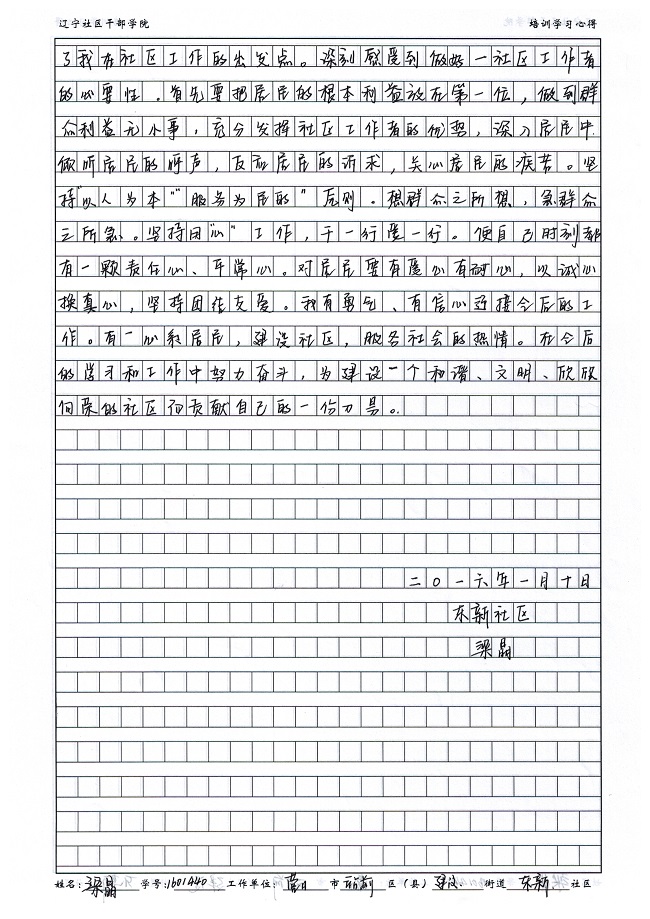 辽宁社区干部学院 培训学习心得
了我在社区工作的出发点。深刻感受到做好一社区工作者
的必要性。首先要把居民的根本利益放在第一位，做到群
众利益无小事，充分发挥社区工作者的优势，深入居民中
倾听居民的呼声，反and居民的诉求，关心居民的疾苦。坚
持"以人为本""服务为居民的"原则。想群众之所想，急群众
之所急。坚持用"心"工作，干一行爱一行。使自己时刻都
有一颗责任心、平常心。对居民要有爱心有耐心，以诚心
换真心，坚持团结友爱。我有勇气、有信心迎接今后的工
作。有一心系居民，建设社区，服务社会的热情。在今后
的学习和工作中努力奋斗，为建设一个和谐、文明、欣欣
向荣的社区而贡献自己的一份力量。
二〇一六年一月十日
东新社区
梁晶
姓名：梁晶 学号：1601440 工作单位 营口 市 站前 区（县） 建设 街道 东新 社区